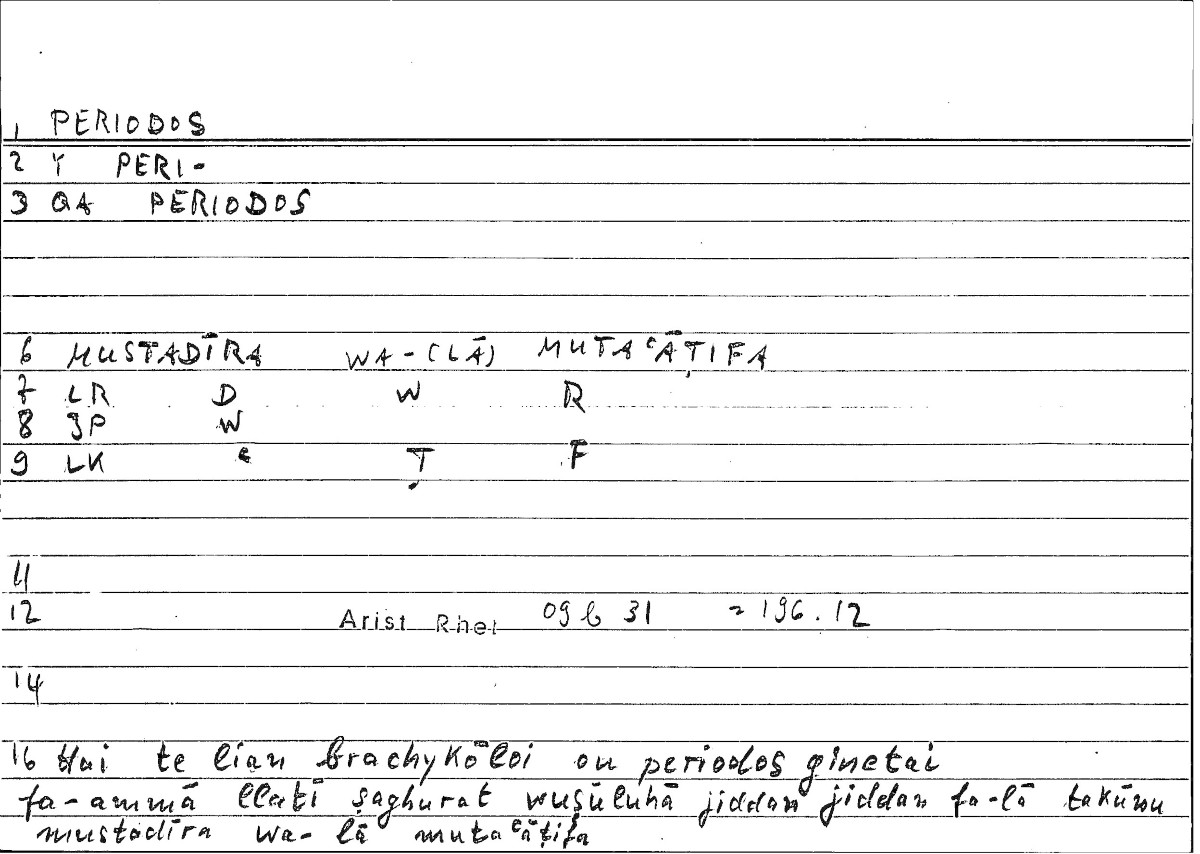 1 PERIODOS
2 Y PERI-
3 QA PERIODOS
6 MUSTADĪRA WA-(LĀ) MUTAʿĀṬIFA
7 LR D W R
8 JP W
9 LK ʿ Ṭ F
11
12 Arist Rhet 09 b 31 = 196.12
14
16 Hai te lian brachykōloi ou periodos ginetai
fa-ammā llatī ṣaghurat wuṣūluhā jiddan jiddan fa-lā takūnu
mustadīra wa-lā mutaʿāṭifa